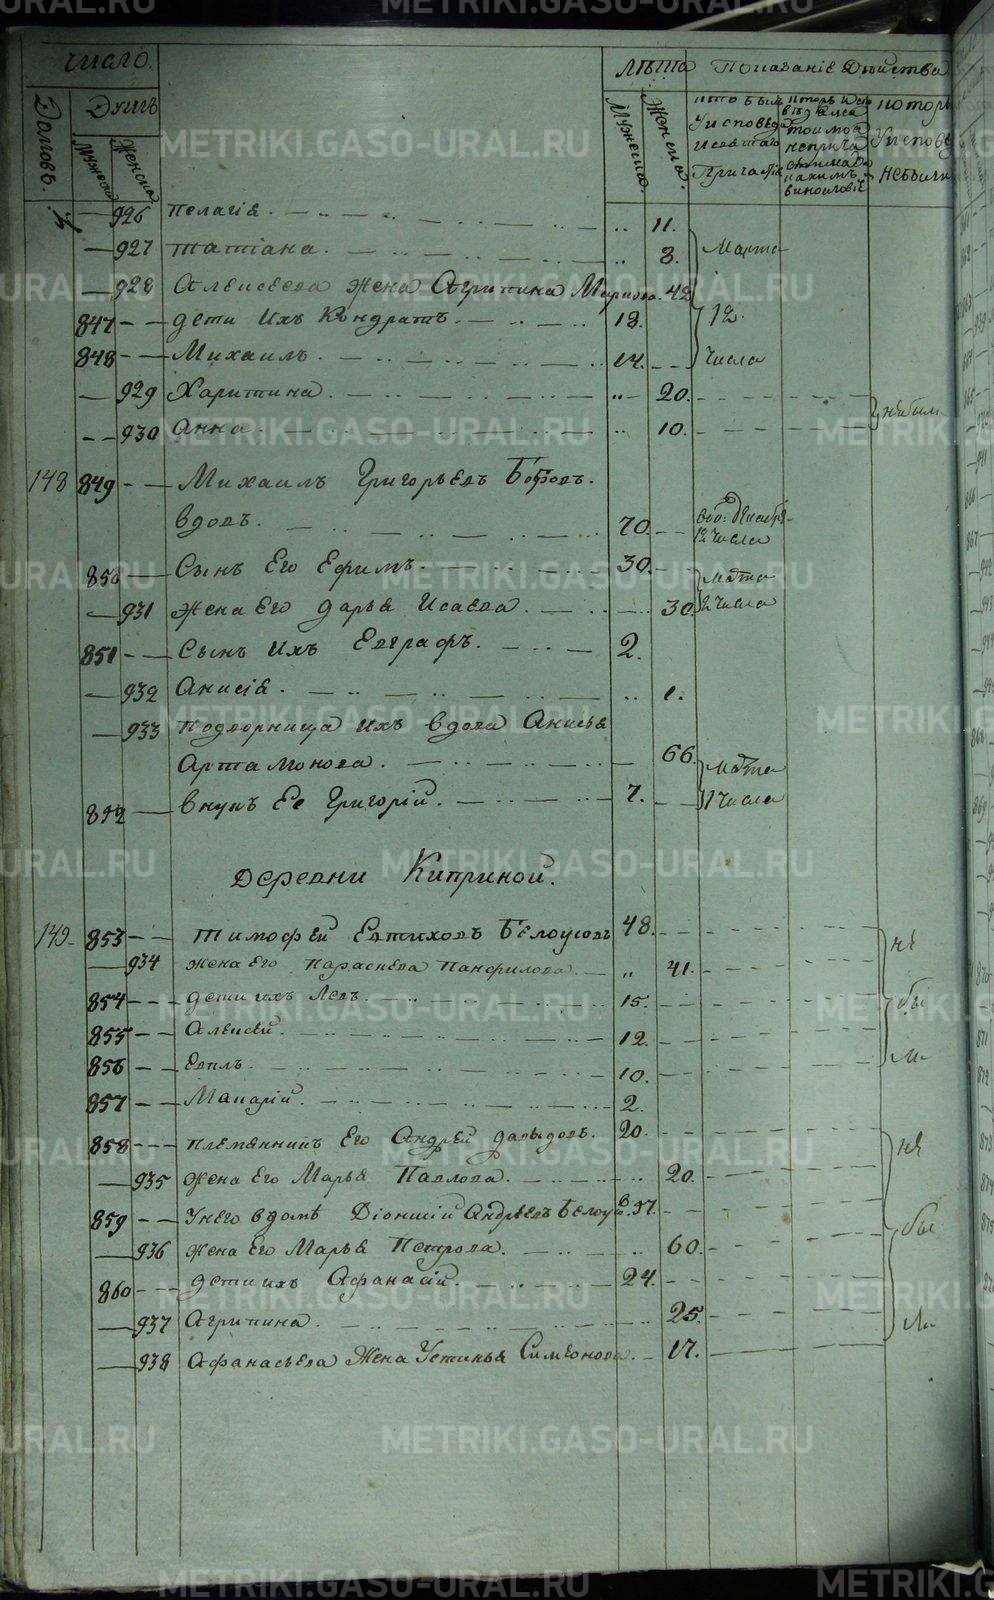 METRIKI.GASO-URAL.RU
число. Лѣта Показаніе Дѣйства
Домовъ. Душъ Мужеска Женска Мужеска. Женска.
кто былъ
У исповеди
и святаго
Причастія
которы
У испове
не были
926 Пелагія. 11.
927 Татіана. 3. Марта
928 Алексеева жена Агрипина Маркова. 42
847 дети ихъ Кондратъ. 18. 12.
848 Михаилъ. 14. числа
929 Харитина. 20.
930 Анна. 10. не были
148 849 Михаилъ Григорьевъ Бобровъ.
вдовъ. 70. 12 числа
850 Сынъ Его Ефимъ. 30. марта
931 жена Его Дарья Исаева. 30. 2 числа
851 Сынъ ихъ Евграфъ. 2.
932 Анисія. 1.
933 Подворница ихъ вдова Анисья
Артамонова. 66. марта
852 внукъ Ее Григорій. 7. 12 числа
Деревни Киприной.
149. 853 Тимофей Евтиховъ Белоусовъ 48. не
934 жена Его Параскева Панфилова. 41.
854 дети ихъ Левъ. 15. бы
855 Алексей. 12.
856 Евплъ. 10. ли
857 Макарій. 2.
858 племянникъ Его Андрей Давыдовъ. 20. не
935 жена Его Марья Павлова. 20.
859 У него в домѣ Діонисій Андреевъ Белоусов. 57. бы
936 жена Его Марья Петрова. 60.
860 дети ихъ Афанасій. 24.
937 Агрипина. 25. ли
938 Афанасьева жена Устинья Симеонова. 17.